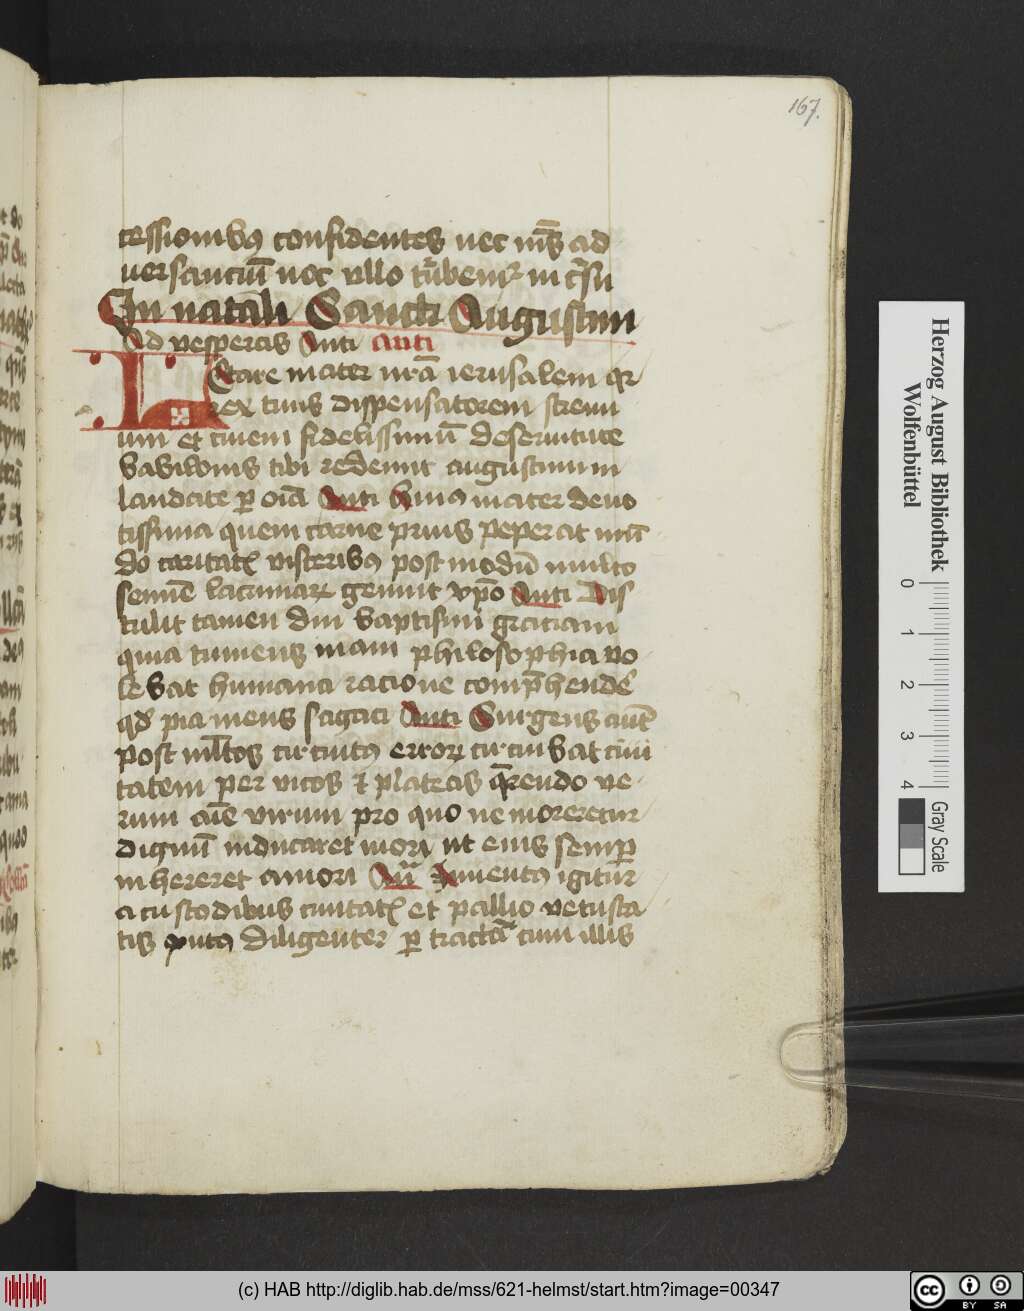 167.
cessionibꝰ confidentes nec inīs ad
uersanciū nec ullo tūbemur in cͬsu
In natali Sancti Augustini
Ad vesperas Anti anti
LEtare mater nr̄a ierusalem qr
rex tuus dispensatorem strenu
um et ciuem fidelissimū deseruitute
babilonis tibi redemit augustinum
laudate ꝑ oīa Anti Huiꝰ mater deuo
tissima quem carne prius peperat mū
do caritatꝭ visceribꝰ postmodū multo
semīe lacrimaꝝ genuit xp̄o Anti Dis
tulit tamen diu baptismi graciam
quia tumens inani philosophia vo
lebat humana racione comp̄hendē
qd̄ pia mens sagaci Anti Surgens autē
post ml̄tos circuitꝰ erroꝝ circuibat ciui
tatem per vicos et plateas q̄rendo ve
rum cū virum pro quo ne moreretur
dignū inducaret mori ut eius semꝑ
inhereret amori An̄ Inuentꝰ igitur
a custodibus ciuitatꝭ et pallio vetusta
tis diligenter ꝑ tractā cum illis
Herzog August Bibliothek
Wolfenbüttel
0 1 2 3 4
Gray Scale
(c) HAB http://diglib.hab.de/mss/621-helmst/start.htm?image=00347
cc BY SA